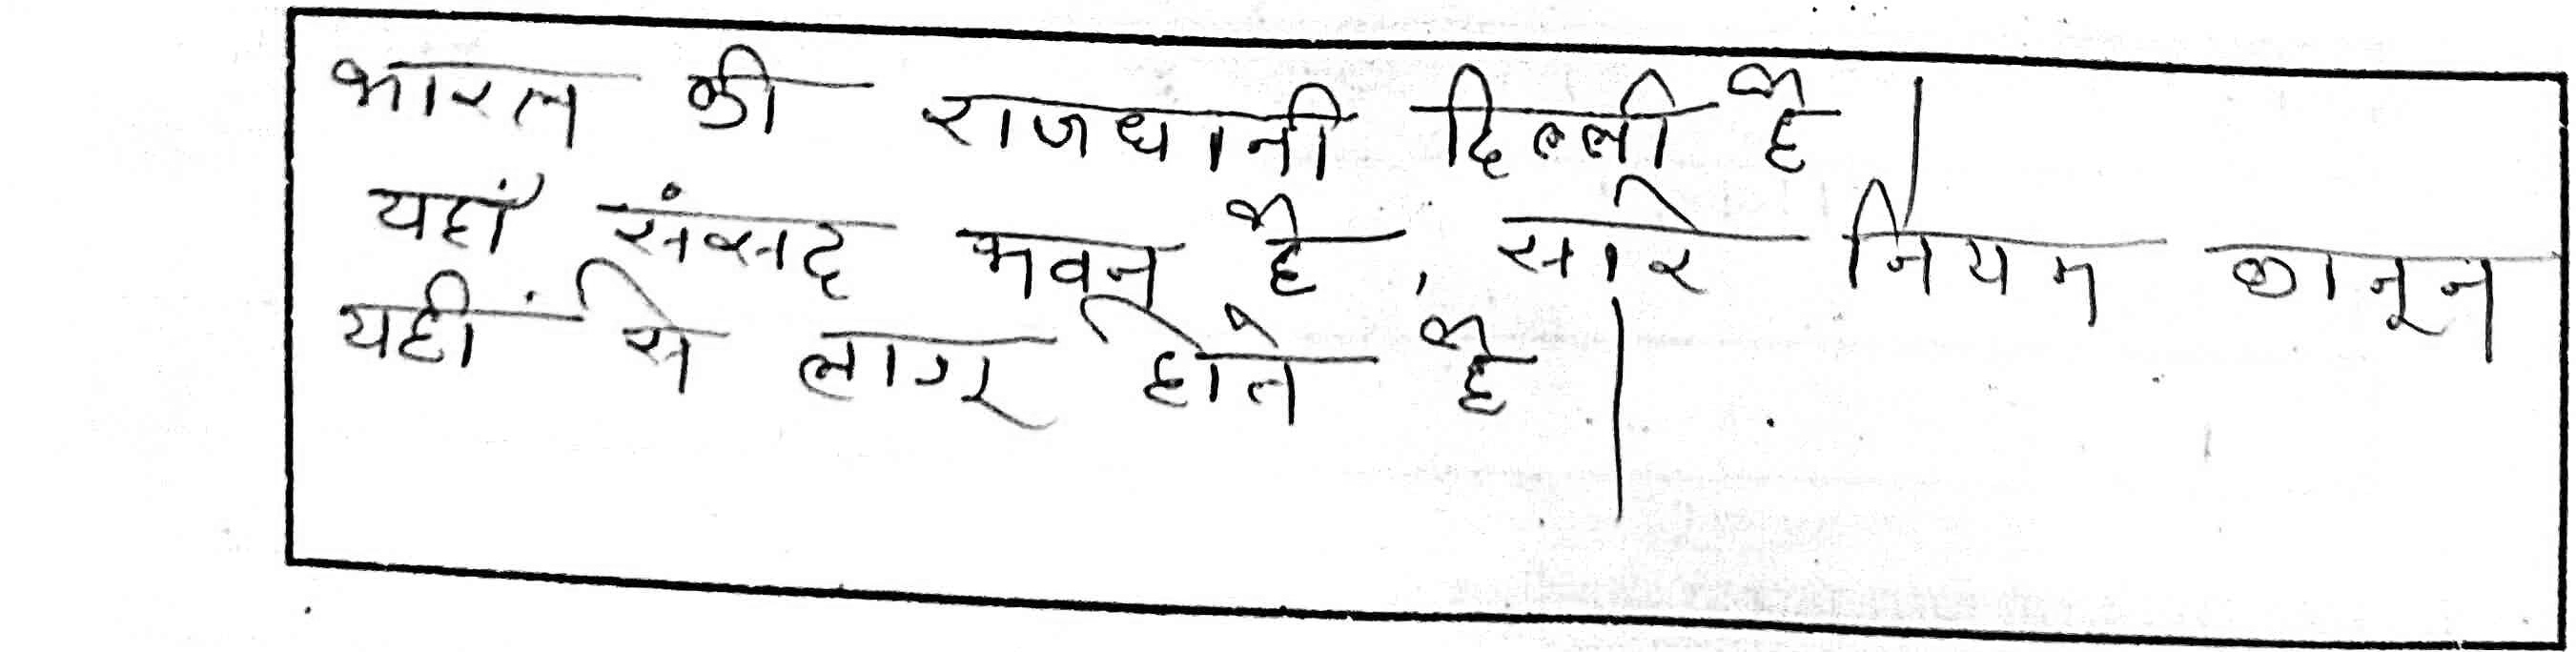 भारत की राजधानी दिल्ली है।
यहाँ संसद भवन है, सारे नियम कानून
यहीं से लागू होते है।